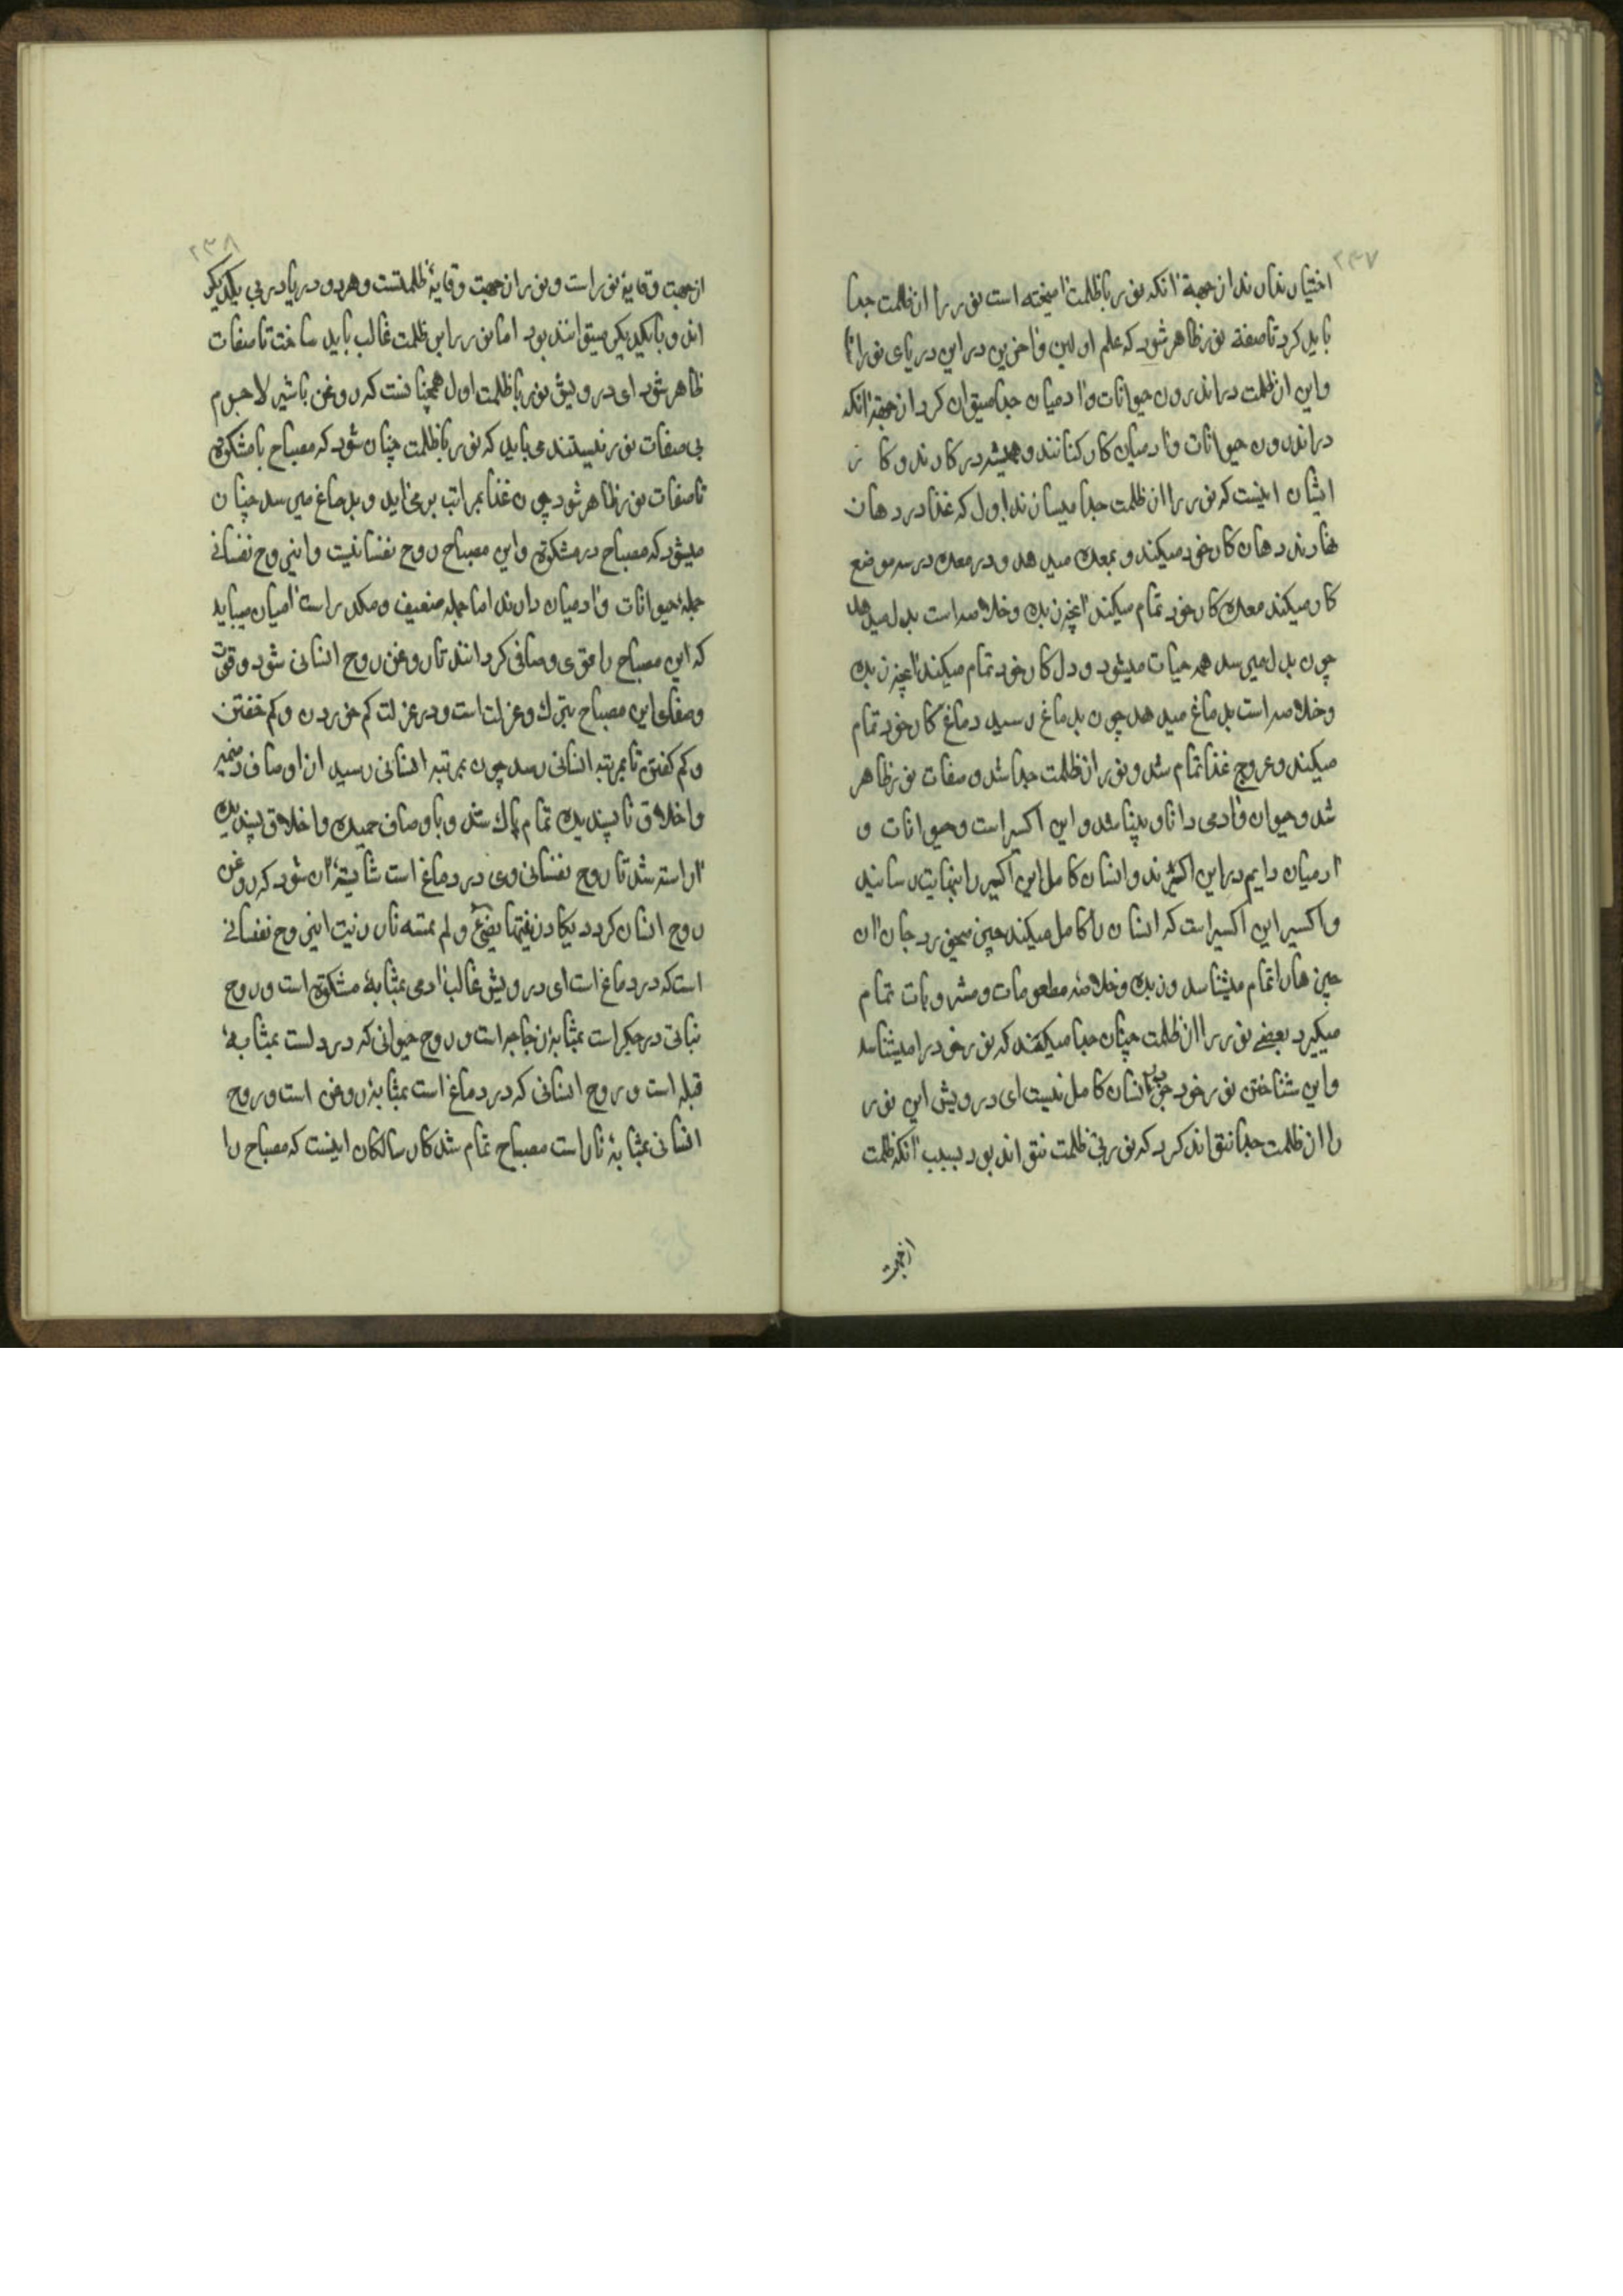 ۲۳۷
اختیار ندارند از جهة آنکه نور با ظلمت آمیخته است نور را از ظلمت جدا
باید کرد تا صفة نور ظاهر شود که علم اولین و آخرین در این دریای نور است
و این از ظلمت در اندرون حیوانات و آدمیان جدا میتوان کرد از جهة آنکه
در اندرون حیوانات و آدمیان کارکنانند و همیشه در کارند و کار
ایشان اینست که نور را از ظلمت جدا میسازند اول که غذا در دهان
نهادند دهان کار خود میکند و بمعده میدهد و در معده در سه موضع
کار میکند معده کار خود تمام میکند آنچه زبده و خلاصه است بدل میدهد
چون بدل میرسد همه حیات میشود و دل کار خود تمام میکند آنچه زبده
و خلاصه است بدماغ میدهد چون بدماغ رسید دماغ کار خود تمام
میکند و عروج غذا تمام شد و نور از ظلمت جدا شد و صفات نور ظاهر
شد و حیوان و آدمی دانا و بینا شد و این اکسیر است و حیوانات و
آدمیان دایم در این اکسیرند و انسان کامل این اکسیر را بنهایت رسانید
و اکسیر این اکسیر است که انسان را کامل میکند چیزی میخورد جان آن
چیزها را تمام میشناسد و زبده و خلاصهٔ مطعومات و مشروبات تمام
میگیرد بعضے نور را از ظلمت چنان جدا میکنند که نور خود را میشناسد
و این شناختن نور خود جز در انسان کامل نیست ای درویش این نور
را از ظلمت جدا نتواند کرد که نور بی ظلمت نتواند بود بسبب آنکه ظلمت
ازجهت
۲۳۸
از جهت وقایهٔ نور است و نور از جهت وقایهٔ ظلمتست و هر دو دریا در بی یکدیگر
اند و با یکدیگر میتوانند بود اما نور را بر ظلمت غالب باید ساخت تا صفات
ظاهر شود ای درویش نور با ظلمت اول همچنانست که روغن با شیر لاجرم
بی صفات نور نیستند می باید که نور با ظلمت چنان شود که مصباح با مشکوة
تا صفات نور ظاهر شود چون غذا بمراتب برمی آید و بدماغ میرسد چنان
میشود که مصباح در مشکوة و این مصباح روح نفسانیست و اینروح نفسانی
جملهٔ حیوانات و آدمیان دارند اما جمله ضعیف و مکدر است آدمیان میباید
که این مصباح را قوی و صافی گردانند تا روغن روح انسانی شود و قوت
و صفای این مصباح بترک و عزلت است و در عزلت کم خوردن و کم خفتن
و کم گفتن تا بمرتبه انسانی رسد چون بمرتبه انسانی رسید از اوصاف ذمیمه
و اخلاق ناپسندیده تمام پاک شد و باوصاف حمیده و اخلاق پسندیده
آراسته شد تا روح نفسانی وی در دماغ است شایستهٔ آن شود که روغن
روح انسان گردد یکاد زیتها یضیئ و لم تمسسه نار زیت اینروح نفسانی
است که در دماغ است ای درویش غالب آدمی بمثابهٔ مشکوة است و روح
نباتی در جگر است بمثابهٔ زجاجه است و روح حیوانی که در دلست بمثابهٔ
فتیله است و روح انسانی که در دماغ است بمثابهٔ روغن است و روح
انسانی بمثابهٔ نار است مصباح تمام شد کار سالکان اینست که مصباح را